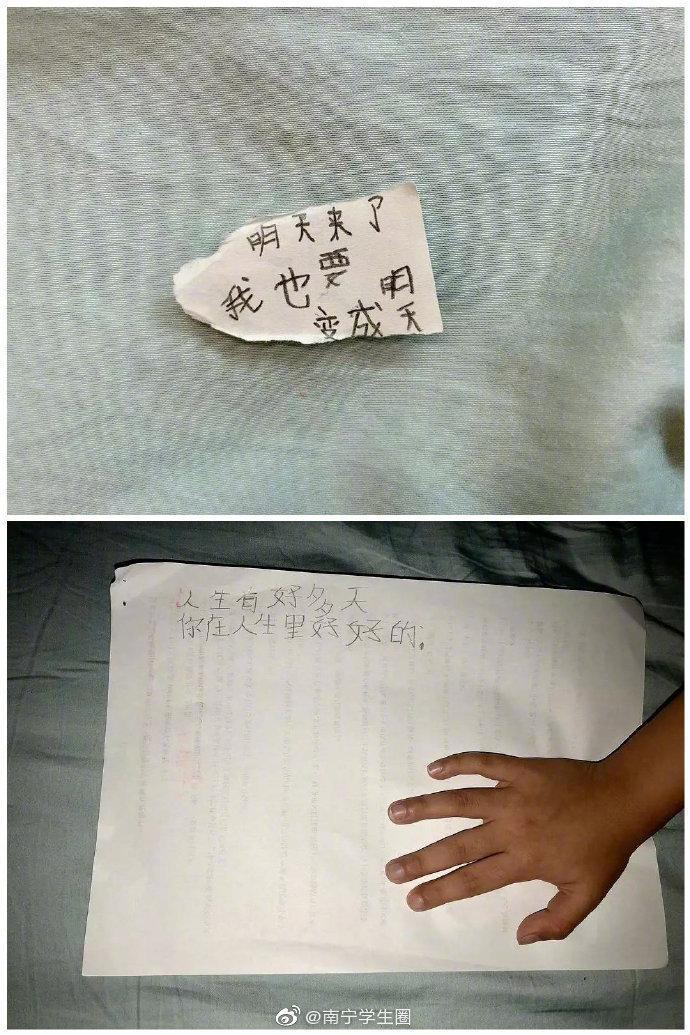 明天来了
我也要
变成明天
人生有好多天
你在人生里好好的,
@南宁学生圈